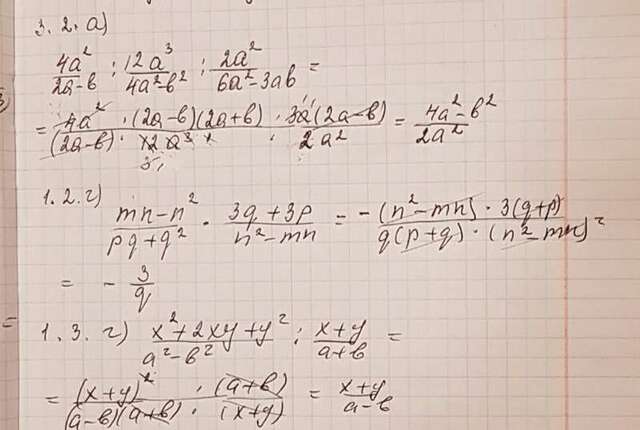 3.2.а)
4a²/(2a-b) : 12a³/(4a²-b²) : 2a²/(6a²-3ab) =
= 4a² · (2a-b)(2a+b) · 3a(2a-b) / (2a-b) · 12a³ · 2a² = (4a²-b²)/(2a²)
3
1.2.г)
(mn-n²)/(pq+q²) · (3q+3p)/(n²-mn) = -(n²-mn) · 3(q+p) / q(p+q) · (n²-mn) =
= - 3/q
1.3.г) (x²+2xy+y²)/(a²-b²) : (x+y)/(a+b) =
= (x+y)² · (a+b) / (a-b)(a+b) · (x+y) = (x+y)/(a-b)